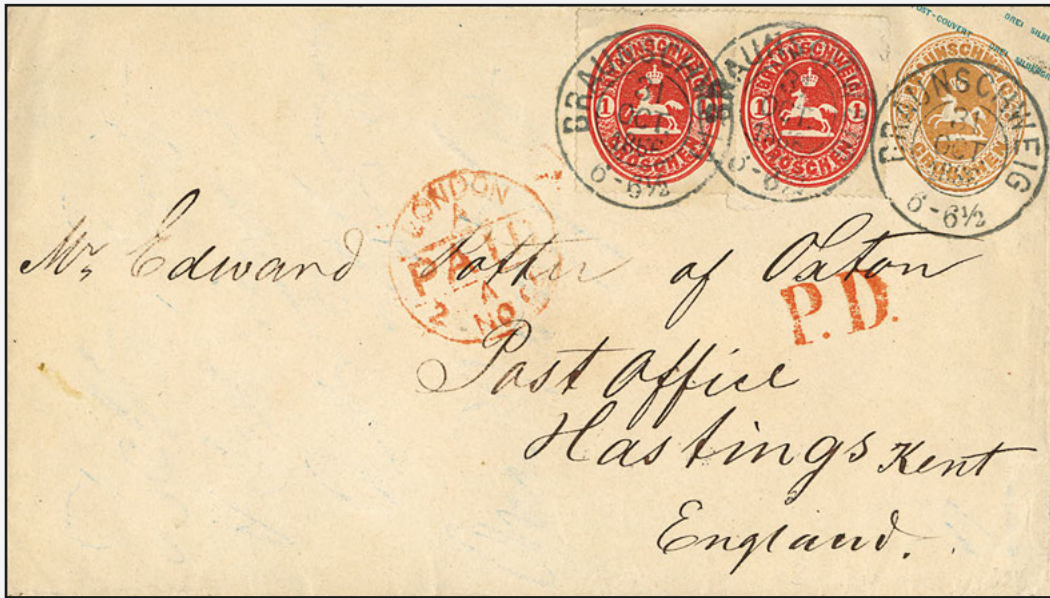 POST-COUVERT DREI SILBE
DREI SILBERGR
BRAUNSCHWEIG
1 1
GROSCHEN
BRAUNSCHWEIG
1 1
GROSCHEN
BRAUNSCHWEIG
GROSCHEN
BRAUNSCHWEIG
31
OCT.
6-6½
BRAUNSCHWEIG
6-6½
BRAUNSCHWEIG
31
OCT
6-6½
LONDON
A
PAID
A
2 NO
Mr Edward Potter of Oxton
P.D.
Post Office
Hastings Kent
England.